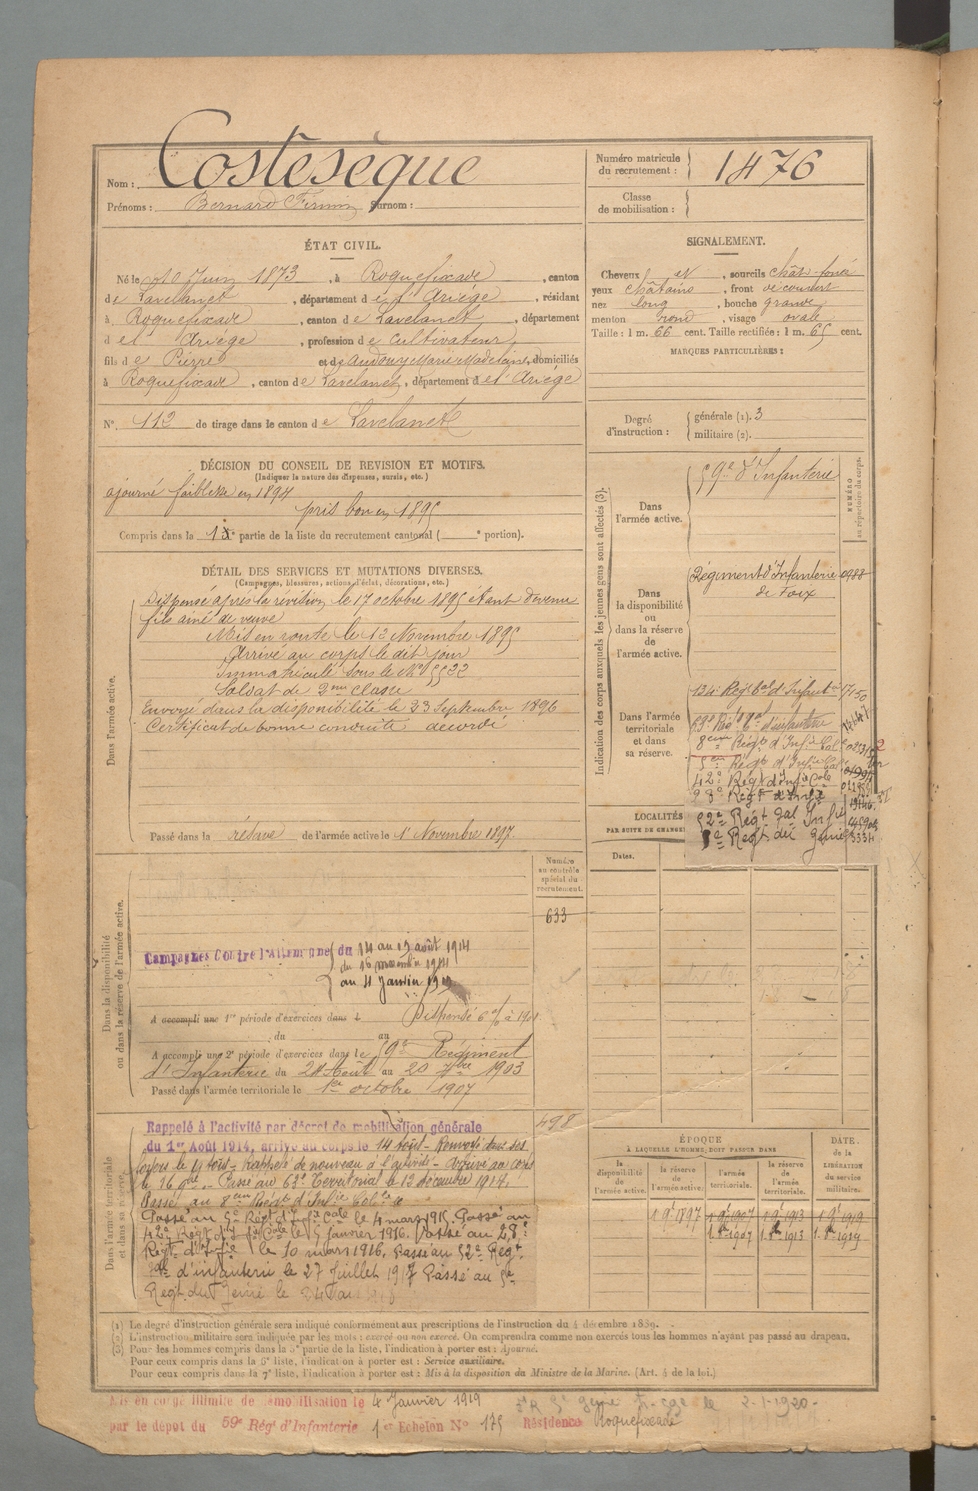 Nom : Costesèque
Prénoms : Bernard Firmin Surnom :
Numéro matricule du recrutement : 1476
Classe de mobilisation :
ÉTAT CIVIL.
Né le 10 Juin 1873, à Roquefixade, canton
de Lavelanet, département de l'Ariège, résidant
à Roquefixade, canton de Lavelanet, département
d el' Ariège, profession de cultivateur
fils de Pierre et de Audouy Marie Madeleine, domiciliés
à Roquefixade, canton de Lavelanet, département de l'Ariège
N° 112 de tirage dans le canton de Lavelanet
SIGNALEMENT.
Cheveux et, sourcils chât-foncé
yeux châtains, front découvert
nez long, bouche grande
menton rond, visage ovale
Taille : 1 m. 66 cent. Taille rectifiée : 1 m. 65 cent.
MARQUES PARTICULIÈRES :
Degré d'instruction :
générale (1). 3
militaire (2).
DÉCISION DU CONSEIL DE REVISION ET MOTIFS.
(Indiquer la nature des dispenses, sursis, etc.)
ajourné faiblesse en 1894
pris bon en 1895
Compris dans la 1e partie de la liste du recrutement cantonal ( e portion).
DÉTAIL DES SERVICES ET MUTATIONS DIVERSES.
(Campagnes, blessures, actions d'éclat, décorations, etc.)
Dans l'armée active.
Dispensé après la révision le 17 octobre 1895 étant devenu
fils ainé de veuve
Mis en route le 12 Novembre 1895
Arrivé au corps le dit jour
Immatriculé sous le No 5522
Soldat de 2me classe
Envoyé dans la disponibilité le 23 Septembre 1896
Certificat de bonne conduite accordé
Passé dans la réserve de l'armée active le 1er Novembre 1897.
Indication des corps auxquels les jeunes gens sont affectés (3).
NUMÉRO au répertoire du corps.
Dans l'armée active.
59e d'Infanterie
Dans la disponibilité ou dans la réserve de l'armée active.
Régiment d'Infanterie 0988
de Foix
Dans l'armée territoriale et dans sa réserve.
134e Régt tal d'Infant
63e Régt tal d'infanterie
8eme Régt d'Infie Cale
5eme Régt d'Infie Cale
42e Régt d'Infie Cole
28e Regt d'Infie
52e Regt tal Infie
5e Regt du Génie
LOCALITÉS
PAR SUITE DE CHANGE
Dates.
Dans la disponibilité ou dans la réserve de l'armée active.
Numéro au contrôle spécial du recrutement.
633
Campagnes Contre l'Allemagne du 14 au 19 août 1914
du 16 novembre 1914
au 4 Janvier 1919
A accompli une 1re période d'exercices dans l Dispensé
du au
A accompli une 2e période d'exercices dans le 59e Régiment
d'Infanterie du 24 Août au 20 7bre 1903
Passé dans l'armée territoriale le 1er octobre 1907
Dans l'armée territoriale et dans sa réserve.
498
Rappelé à l'activité par décret de mobilisation générale
du 1er Août 1914, arrivé au corps le 14 août - Renvoyé dans ses
foyers le août - Rappelé de nouveau à l'activité - Arrivé au corps
le 16 9bre - Passé au 63e Territorial le 12 décembre 1914.
Passé au 8eme Régt d'Infie Colle le
Passé au 5e Régt d'Infie Cole le 4 mars 1915. Passé au
42e Régt d'Infie Cole le 5 Janvier 1916. Passé au 28e
Régt d'Infie le 10 mars 1916. Passé au 52e Régt
tal d'infanterie le 27 Juillet 1917 Passé au 5e
Regt du Génie le 24
ÉPOQUE
À LAQUELLE L'HOMME DOIT PASSER DANS
la disponibilité de l'armée active.
la réserve de l'armée active.
l'armée territoriale.
la réserve de l'armée territoriale.
DATE. de la LIBÉRATION du service militaire.
1 9bre 1897 1 9bre 1907 1 9bre 1913 1 9bre 1919
1.8bre 1907 1.8bre 1913 1.8bre 1919
(1) Le degré d'instruction générale sera indiqué conformément aux prescriptions de l'instruction du 4 décembre 1889.
(2) L'instruction militaire sera indiquée par les mots : exercé ou non exercé. On comprendra comme non exercés tous les hommes n'ayant pas passé au drapeau.
(3) Pour les hommes compris dans la 5e partie de la liste, l'indication à porter est : Ajourné.
Pour ceux compris dans la 6e liste, l'indication à porter est : Service auxiliaire.
Pour ceux compris dans la 7e liste, l'indication à porter est : Mis à la disposition du Ministre de la Marine. (Art. 4 de la loi.)
Mis en congé illimité de démobilisation le 4 Janvier 1919
par le dépot du 59e Régt d'Infanterie 1er Echelon No 175 Résidence Roquefixade
5e Génie 2-1-1920-